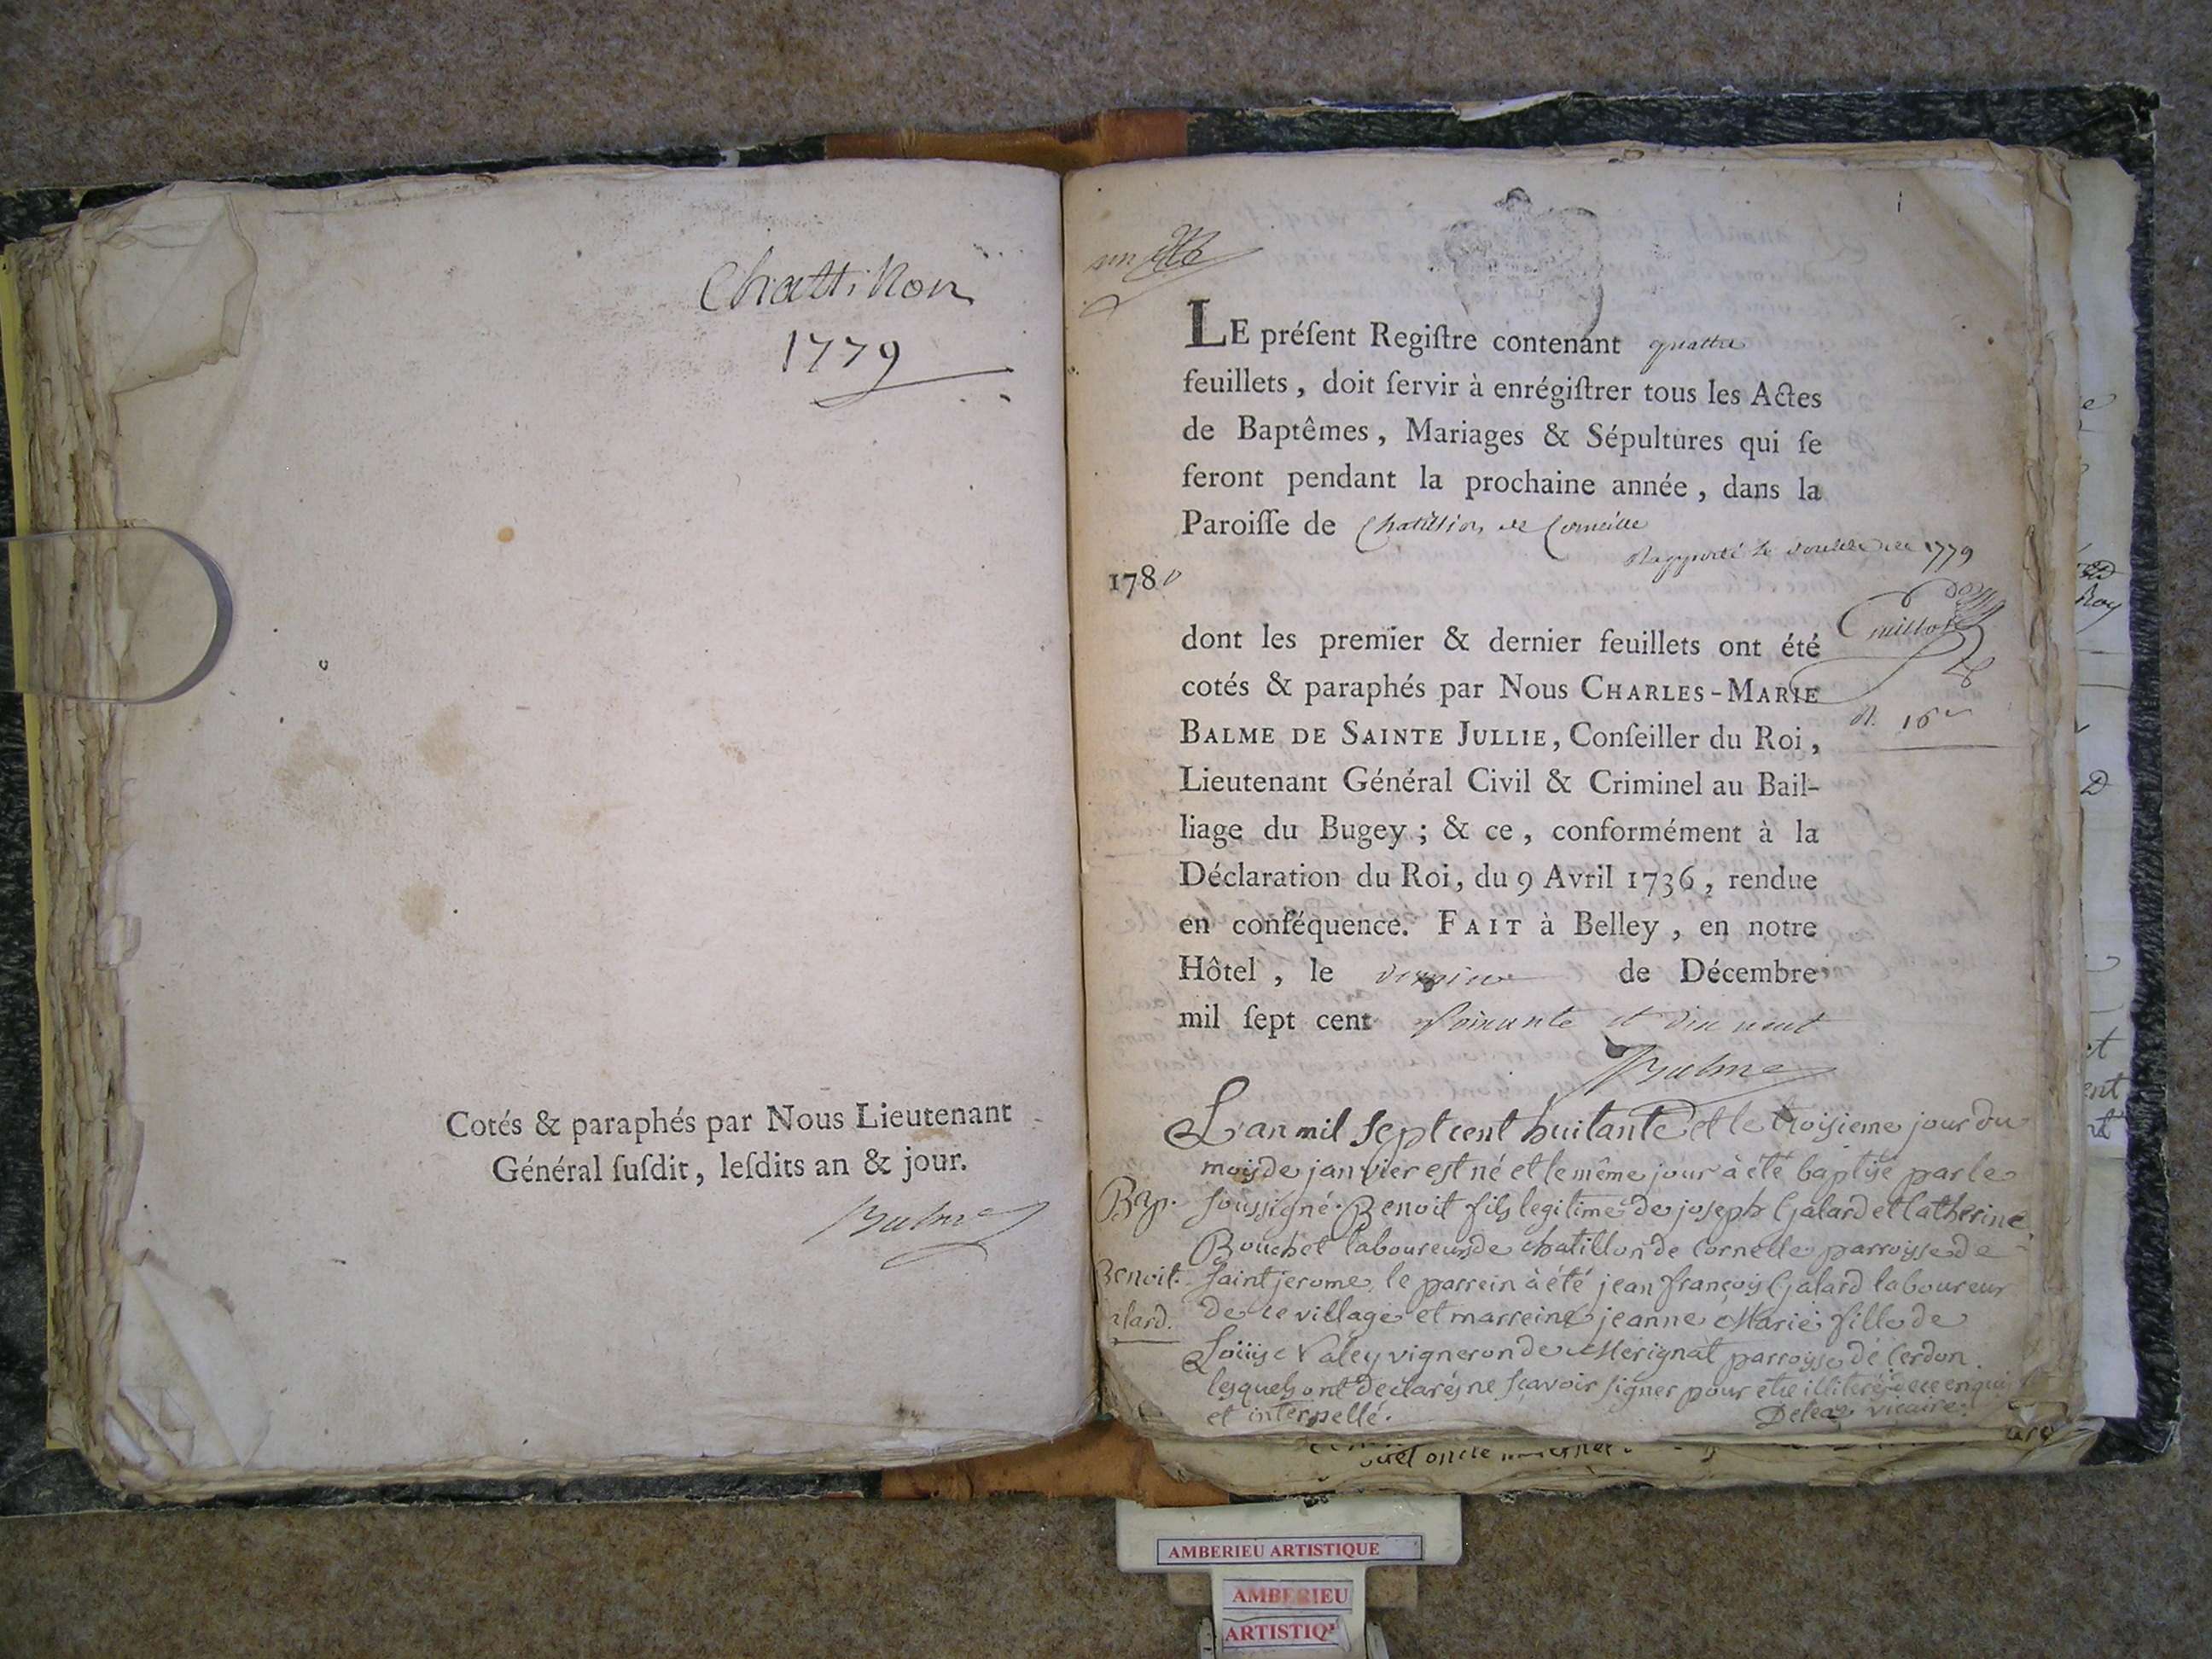 Chattillon
1779
Cotés & paraphés par Nous Lieutenant
Général ſuſdit, leſdits an & jour.
Balme
1
un
LE préſent Regiſtre contenant quattre
feuillets, doit ſervir à enrégiſtrer tous les Actes
de Baptêmes, Mariages & Sépultures qui ſe
feront pendant la prochaine année, dans la
Paroiſſe de Chatillion de Corneille
1779
1780
dont les premier & dernier feuillets ont été
cotés & paraphés par Nous CHARLES-MARIE
BALME DE SAINTE JULLIE, Conſeiller du Roi,
Lieutenant Général Civil & Criminel au Bail-
liage du Bugey; & ce, conformément à la
Déclaration du Roi, du 9 Avril 1736, rendue
en conſéquence. FAIT à Belley, en notre
Hôtel, le de Décembre
mil ſept cent soixante et dix neuf
Balme
L'an mil sept cent huitante et le troisieme jour du
mois de janvier est né et le même jour à été baptisé par le
Bap. soussigné Benoit fils legitime de joseph Galard et Catherine
Bouchet laboureurs de chatillon de Cornelle parroisse de
Benoit saint jerome, le parrein à été jean françois Galard laboureur
alard. de ce village et marreine jeanne Marie fille de
Louïse Valey vigneron de Merignat parroisse de Cerdon.
lesquels ont declarés ne sçavoir signer pour etre illiterés de ce enquis
et interpellé. vicaire.
AMBERIEU ARTISTIQUE
AMBERIEU
ARTISTIQ